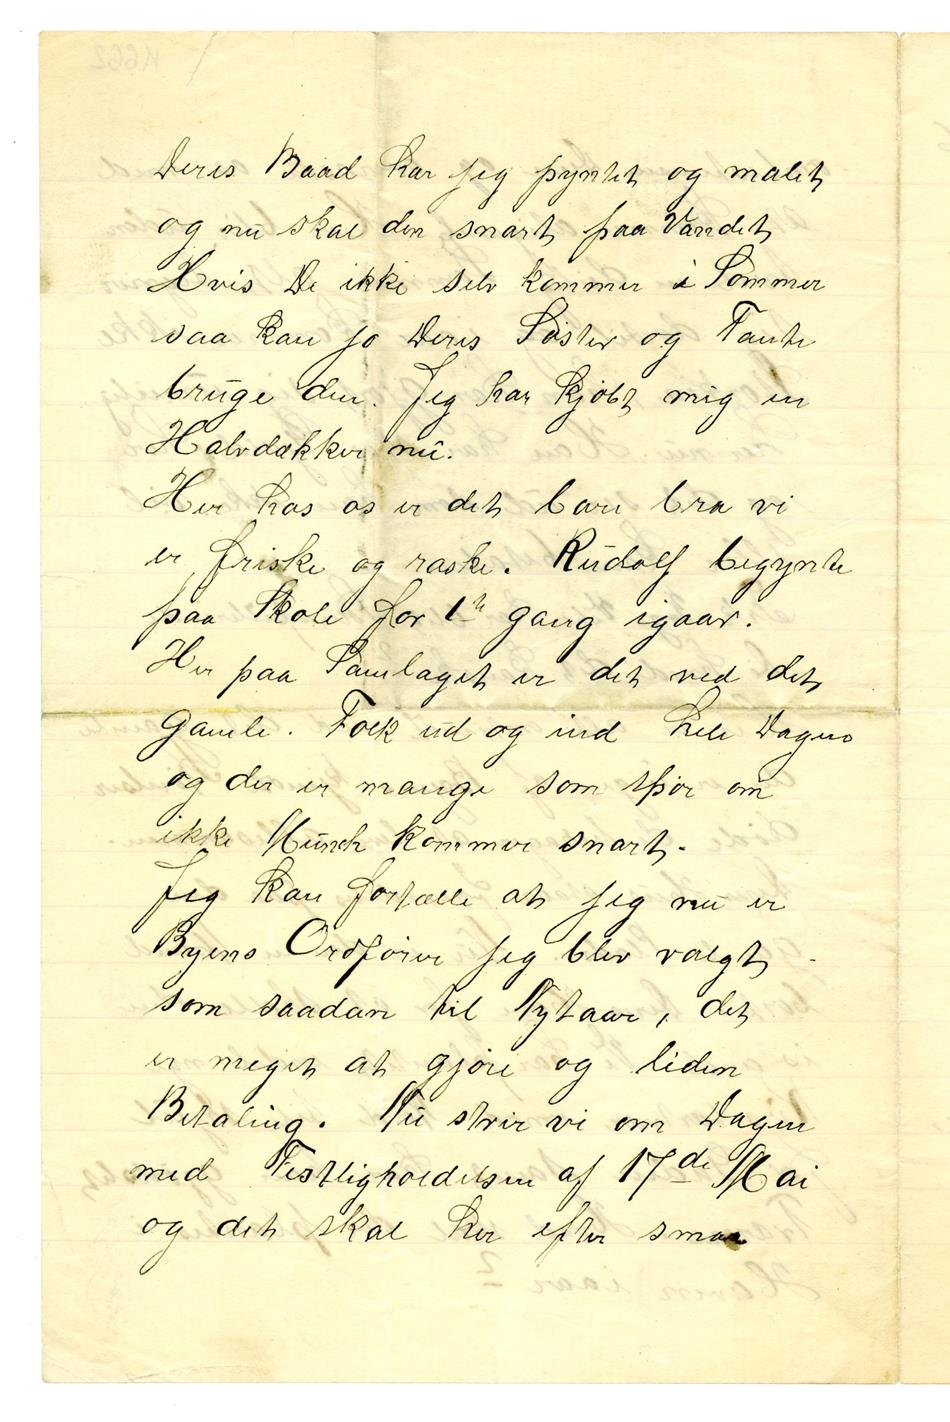 Deres Baad har jeg pyntet og malet
og nu skal den snart paa Vandet
Hvis De ikke selv kommer i Sommer
saa kan jo Deres Søster og Tante
bruge den. Jeg har kjøbt mig en
Halvdækker nu.
Her hos os er det bare bra vi
er friske og raske. Rudolf begynte
paa Skole for 1ste gang igaar.
Her paa Samlaget er det ved det
gamle. Folk ud og ind hele Dagen
og der er mange som spør om
ikke Munch kommer snart.
Jeg kan fortælle at jeg nu er
Byens Ordfører jeg blev valgt
som saadan til Nytaar, det
er meget at gjøre og liden
Betaling. Nu strir vi om Dagen
med Festligholdelsen af 17de Mai
og det skal her efter smaa